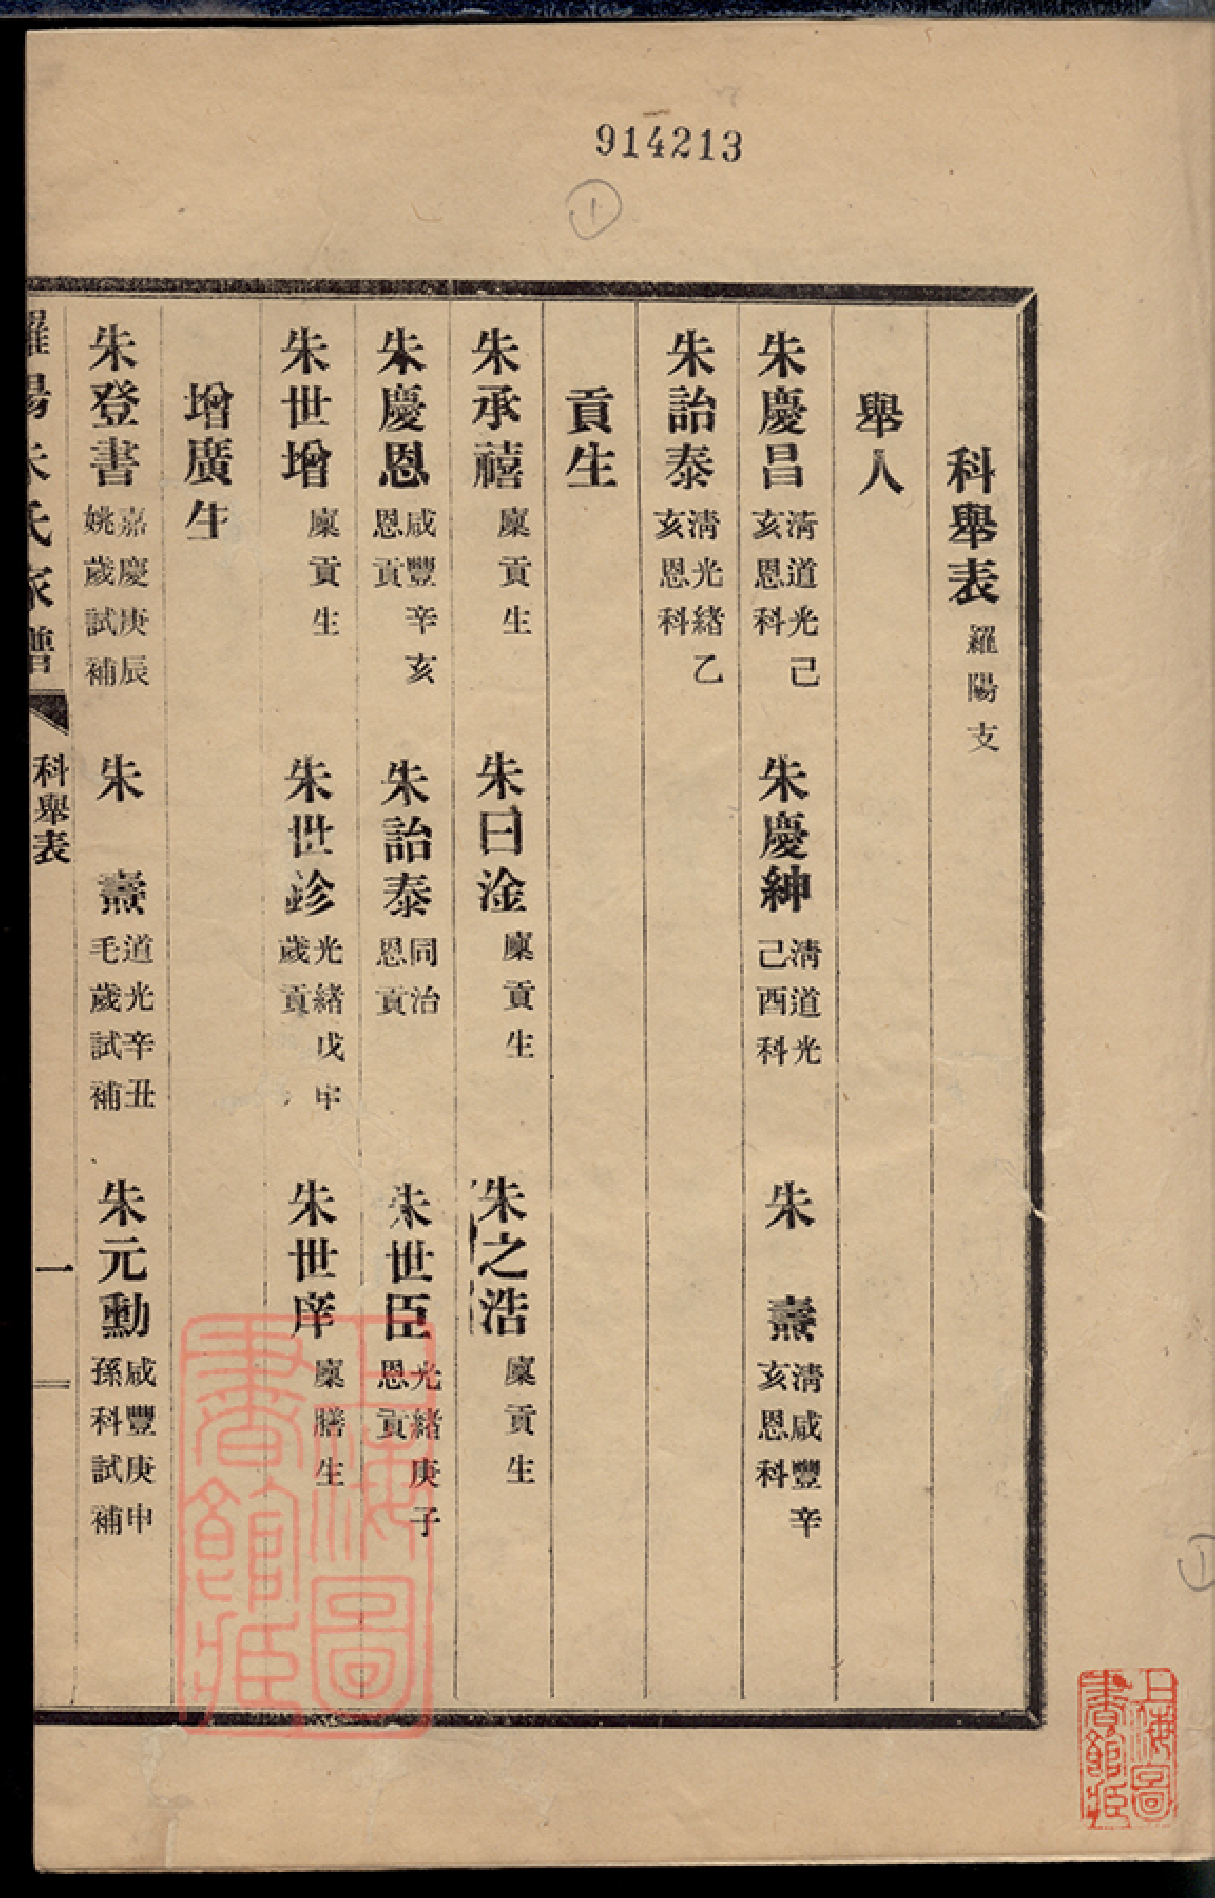 914213
1
科舉表 羅陽支
舉人
朱慶昌 清道光己亥恩科 朱慶紳 清道光己酉科 朱燾 清咸豐辛亥恩科
朱詒泰 清光緒乙亥恩科
貢生
朱承禧 廩貢生 朱曰淦 廩貢生 朱之浩 廩貢生
朱慶恩 咸豐辛亥恩貢 朱詒泰 同治恩貢 朱世臣 光緒庚子恩貢
朱世增 廩貢生 朱世珍 光緒戊申歲貢 朱世庠 廩膳生
增廣生
朱登書 嘉慶庚辰姚歲試補 朱燾 道光辛丑毛歲試補 朱元勳 咸豐庚申孫科試補
羅陽朱氏家譜 科舉表 一
上海圖書館藏
1
上海圖書館藏